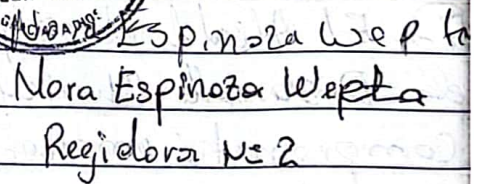 Espinoza Wepta
Nora Espinoza Wepta
Regidora Nº 2